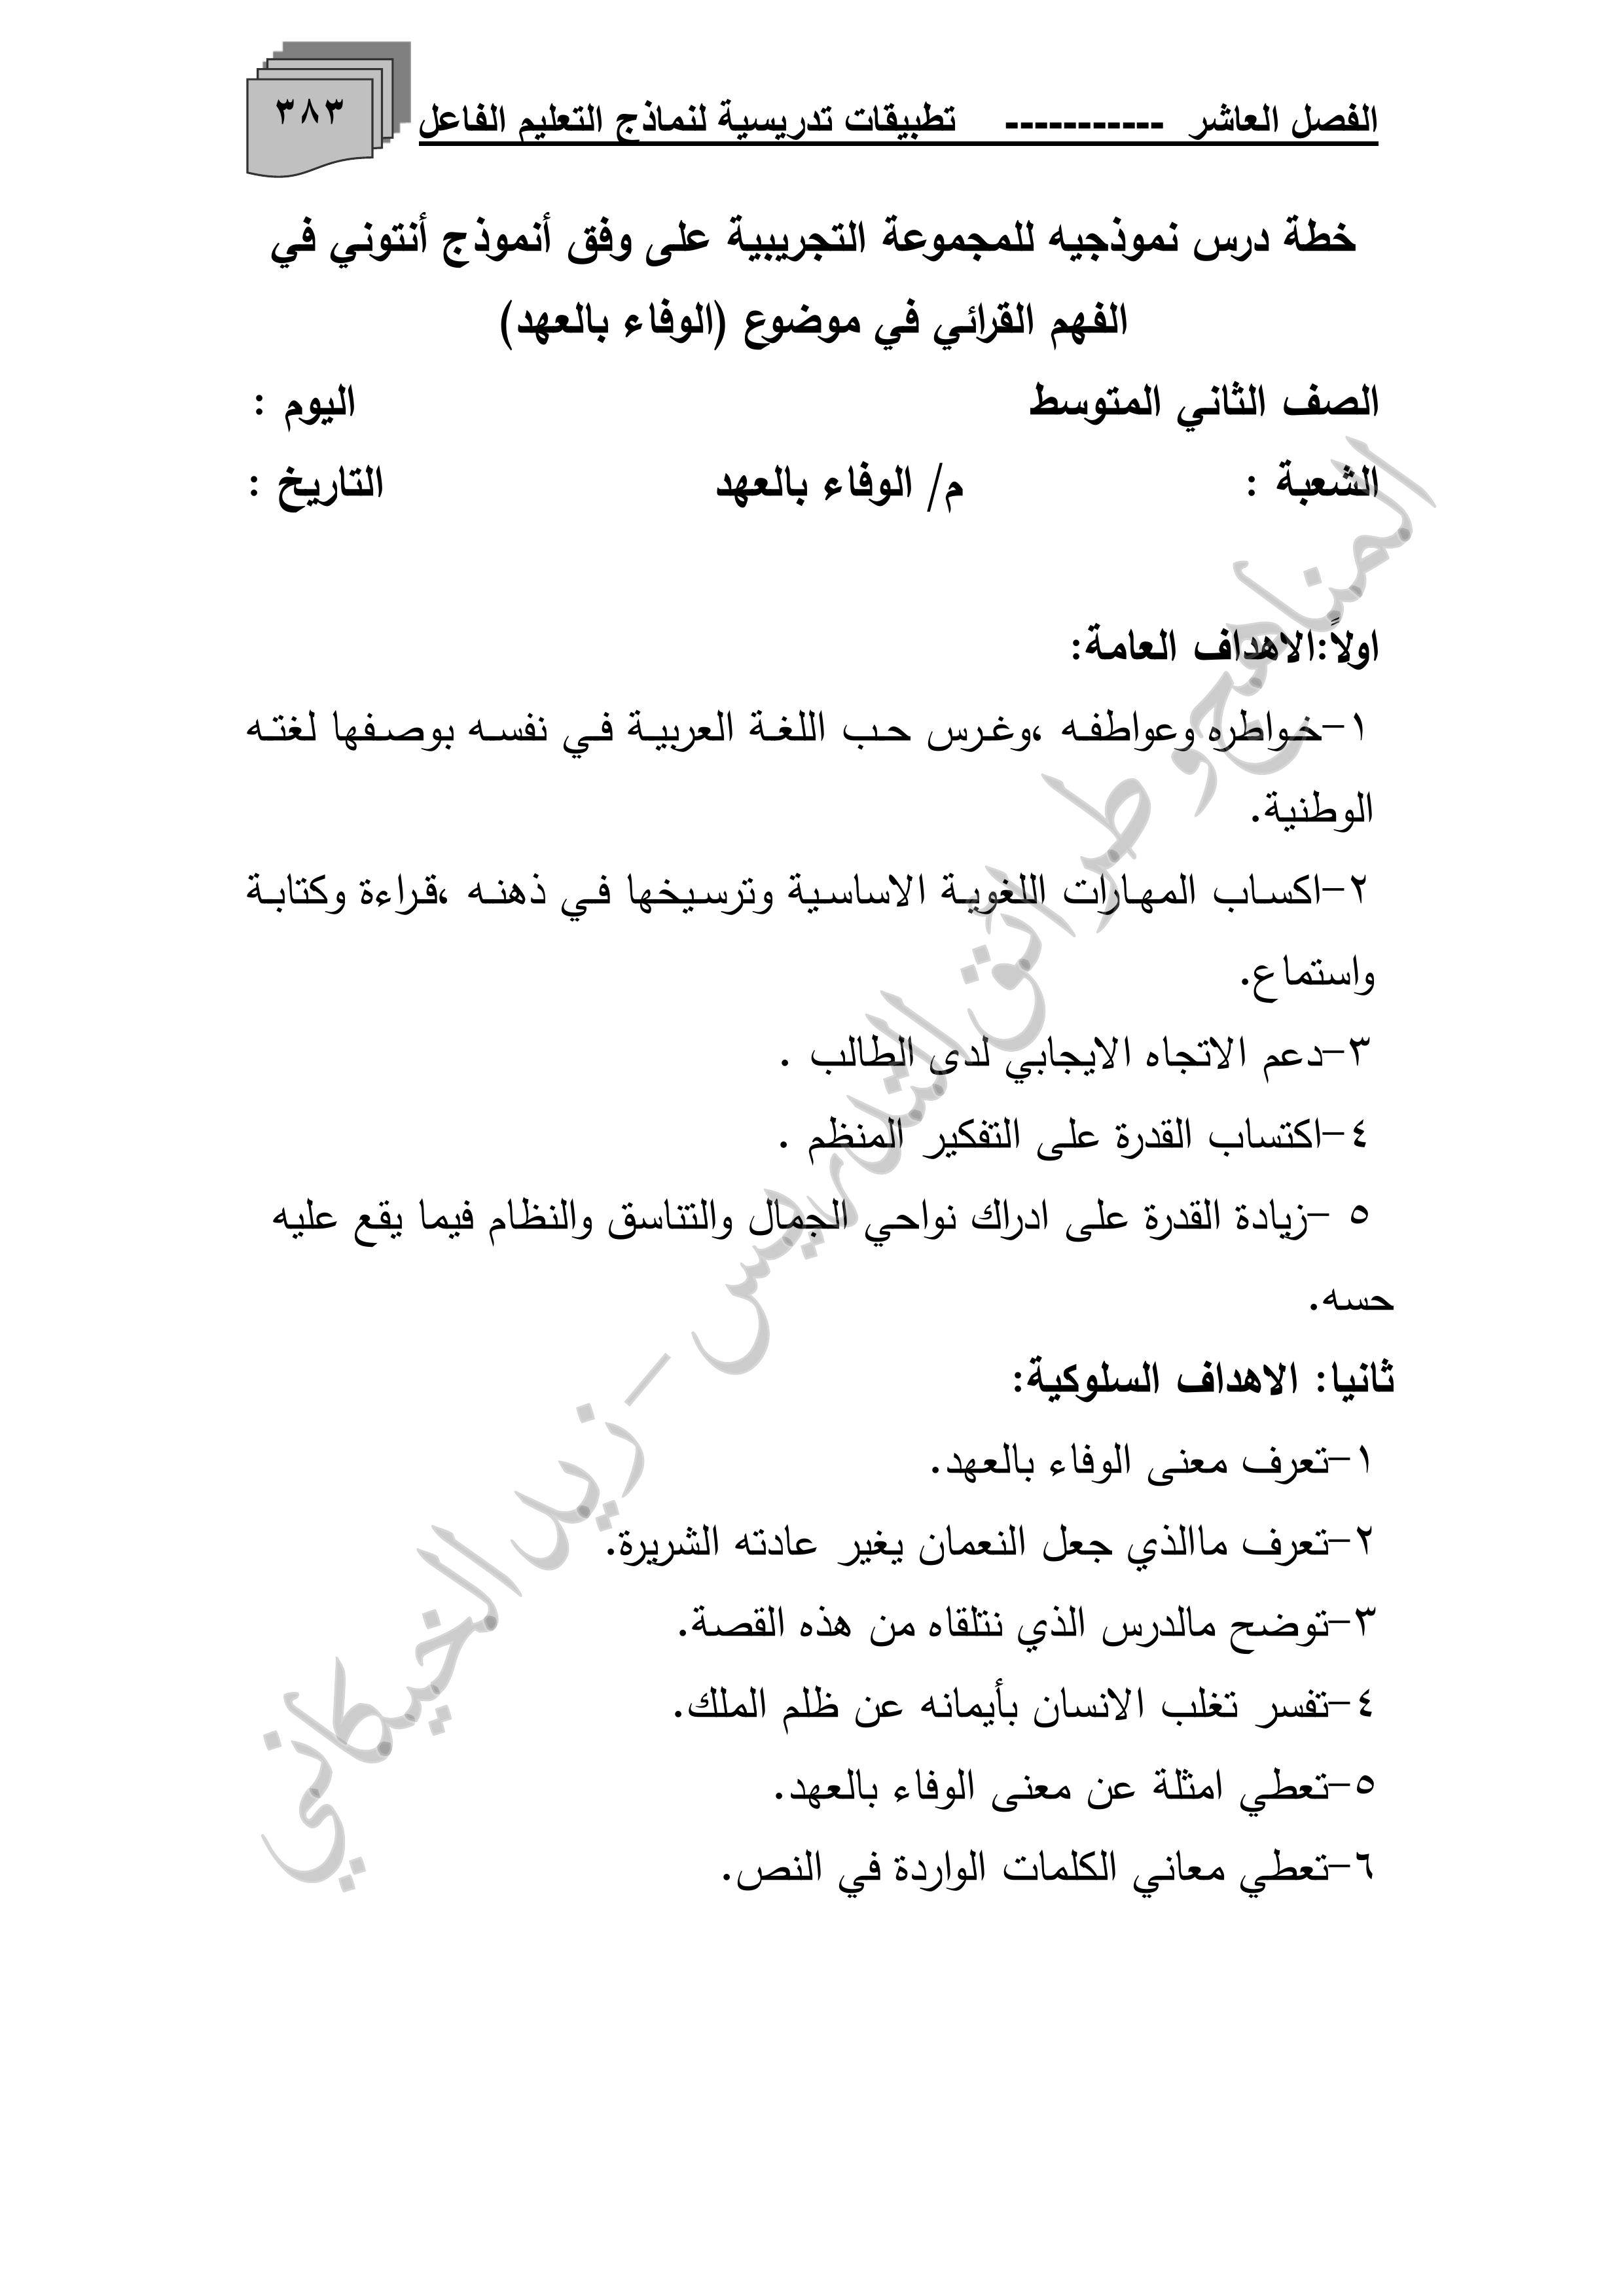 الفصل العاشر ----------- تطبيقات تدريسية لنماذج التعليم الفاعل
٣٨٣
خطة درس نموذجيه للمجموعة التجريبية على وفق أنموذج أنتوني في
الفهم القرائي في موضوع (الوفاء بالعهد)
الصف الثاني المتوسط اليوم :
الشعبة : م/ الوفاء بالعهد التاريخ :
اولاً:الاهداف العامة:
١-خواطره وعواطفه ،وغرس حب اللغة العربية في نفسه بوصفها لغته
الوطنية.
٢-اكساب المهارات اللغوية الاساسية وترسيخها في ذهنه ،قراءة وكتابة
واستماع.
٣-دعم الاتجاه الايجابي لدى الطالب .
٤-اكتساب القدرة على التفكير المنظم .
٥ -زيادة القدرة على ادراك نواحي الجمال والتناسق والنظام فيما يقع عليه
حسه.
ثانيا: الاهداف السلوكية:
١-تعرف معنى الوفاء بالعهد.
٢-تعرف ماالذي جعل النعمان يغير عادته الشريرة.
٣-توضح مالدرس الذي نتلقاه من هذه القصة.
٤-تفسر تغلب الانسان بأيمانه عن ظلم الملك.
٥-تعطي امثلة عن معنى الوفاء بالعهد.
٦-تعطي معاني الكلمات الواردة في النص.
المناهج وطرائق التدريس - زيد الخيكاني